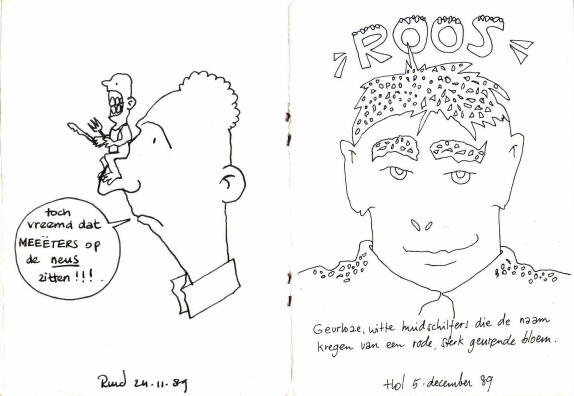 toch
vreemd dat
MEEËTERS op
de neus
zitten!!!
Ruud 24.11.89
ROOS
Geurloze, witte huidschilfers die de naam
kregen van een rode, sterk geurende bloem.
Hol 5.december 89